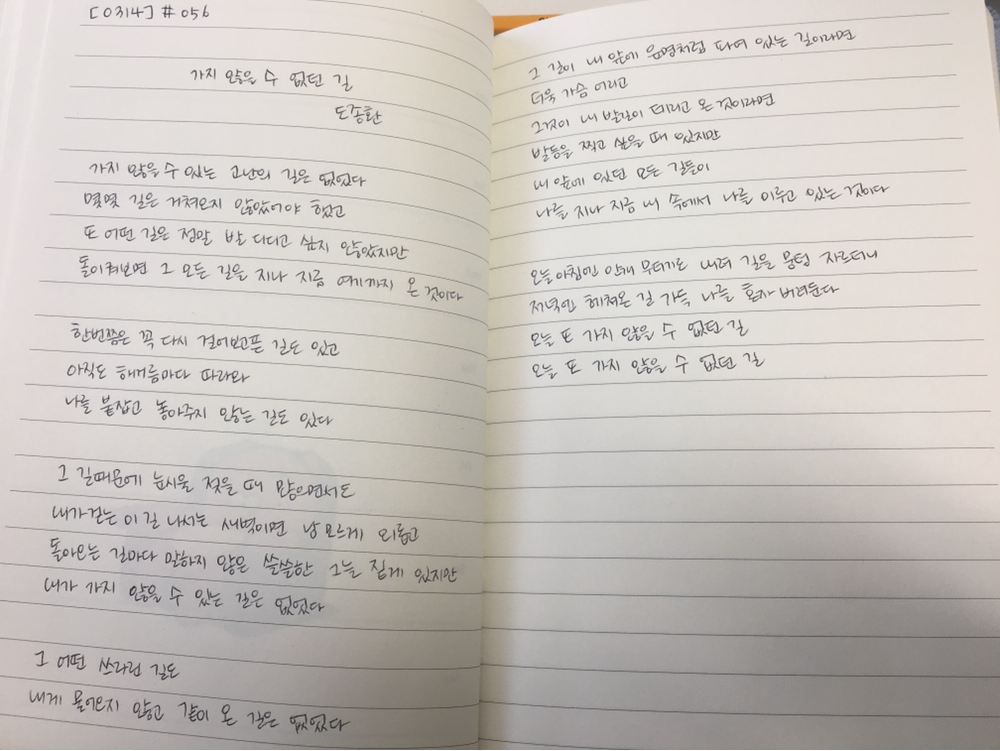 [0314] # 056
가지 않을 수 없던 길
도종환
가지 않을 수 있는 고난의 길은 없었다
몇몇 길은 거쳐오지 않았어야 했고
또 어떤 길은 정말 발 디디고 싶지 않았지만
돌이켜보면 그 모든 길을 지나 지금 여기까지 온 것이다
한번쯤은 꼭 다시 걸어보고픈 길도 있고
아직도 해거름마다 따라와
나를 붙잡고 놓아주지 않는 길도 있다
그 길때문에 눈시울 젖을 때 많으면서도
내가걷는 이 길 나서는 새벽이면 남 모르게 외롭고
돌아오는 길마다 말하지 않은 쓸쓸한 그늘 짙게 있지만
내가 가지 않을 수 있는 길은 없었다
그 어떤 쓰라린 길도
내게 물어오지 않고 같이 온 길은 없었다
그 길이 내 앞에 운명처럼 파여 있는 길이라면
더욱 가슴 아리고
그것이 내 발길이 데리고 온 것이라면
발등을 찍고 싶을 때 있지만
내 앞에 있던 모든 길들이
나를 지나 지금 내 속에서 나를 이루고 있는 것이다
오늘 아침엔 안개 무더기로 내려 길을 뭉텅 자르더니
저녁엔 헤쳐온 길 가득 나를 혼자 버려둔다
오늘 또 가지 않을 수 없던 길
오늘 또 가지 않을 수 없던 길